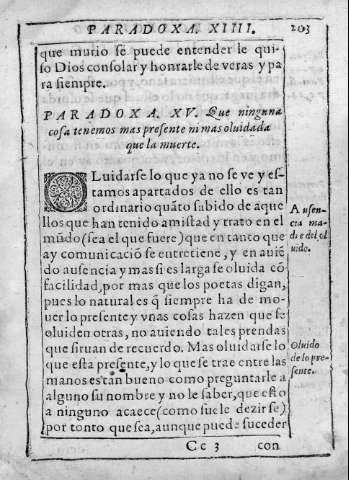 PARADOXA. XIIII. 203
que murio se puede entender le qui
so Dios consolar y honrarle de veras y pa
ra siempre.
PARADOXA. XV. Que ninguna
cosa tenemos mas presente ni mas oluidada
que la muerte.
OLuidarse lo que ya no se ve y es-
tamos apartados de ello es tan
ordinario quãto sabido de aque
llos que han tenido amistad y trato en el
mũdo (sea el que fuere) que en tanto que
ay comunicaciõ se entretiene, y en auiẽ
do ausencia y mas si es larga se oluida cõ
facilidad, por mas que los poetas digan,
pues lo natural es q̃ siempre ha de mo-
uer lo presente y vnas cosas hazen que se
oluiden otras, no auiendo tales prendas
que siruan de recuerdo. Mas oluidarse lo
que esta presente, y lo que se trae entre las
manos es tan bueno como preguntarle a
alguno su nombre y no le saber, que esto
a ninguno acaece (como suele dezirse)
por tonto que sea, aunque puede suceder
Cc 3 con
Ausen-
cia ma-
dre del ol
uido.
Oluido
de lo pre-
sente.